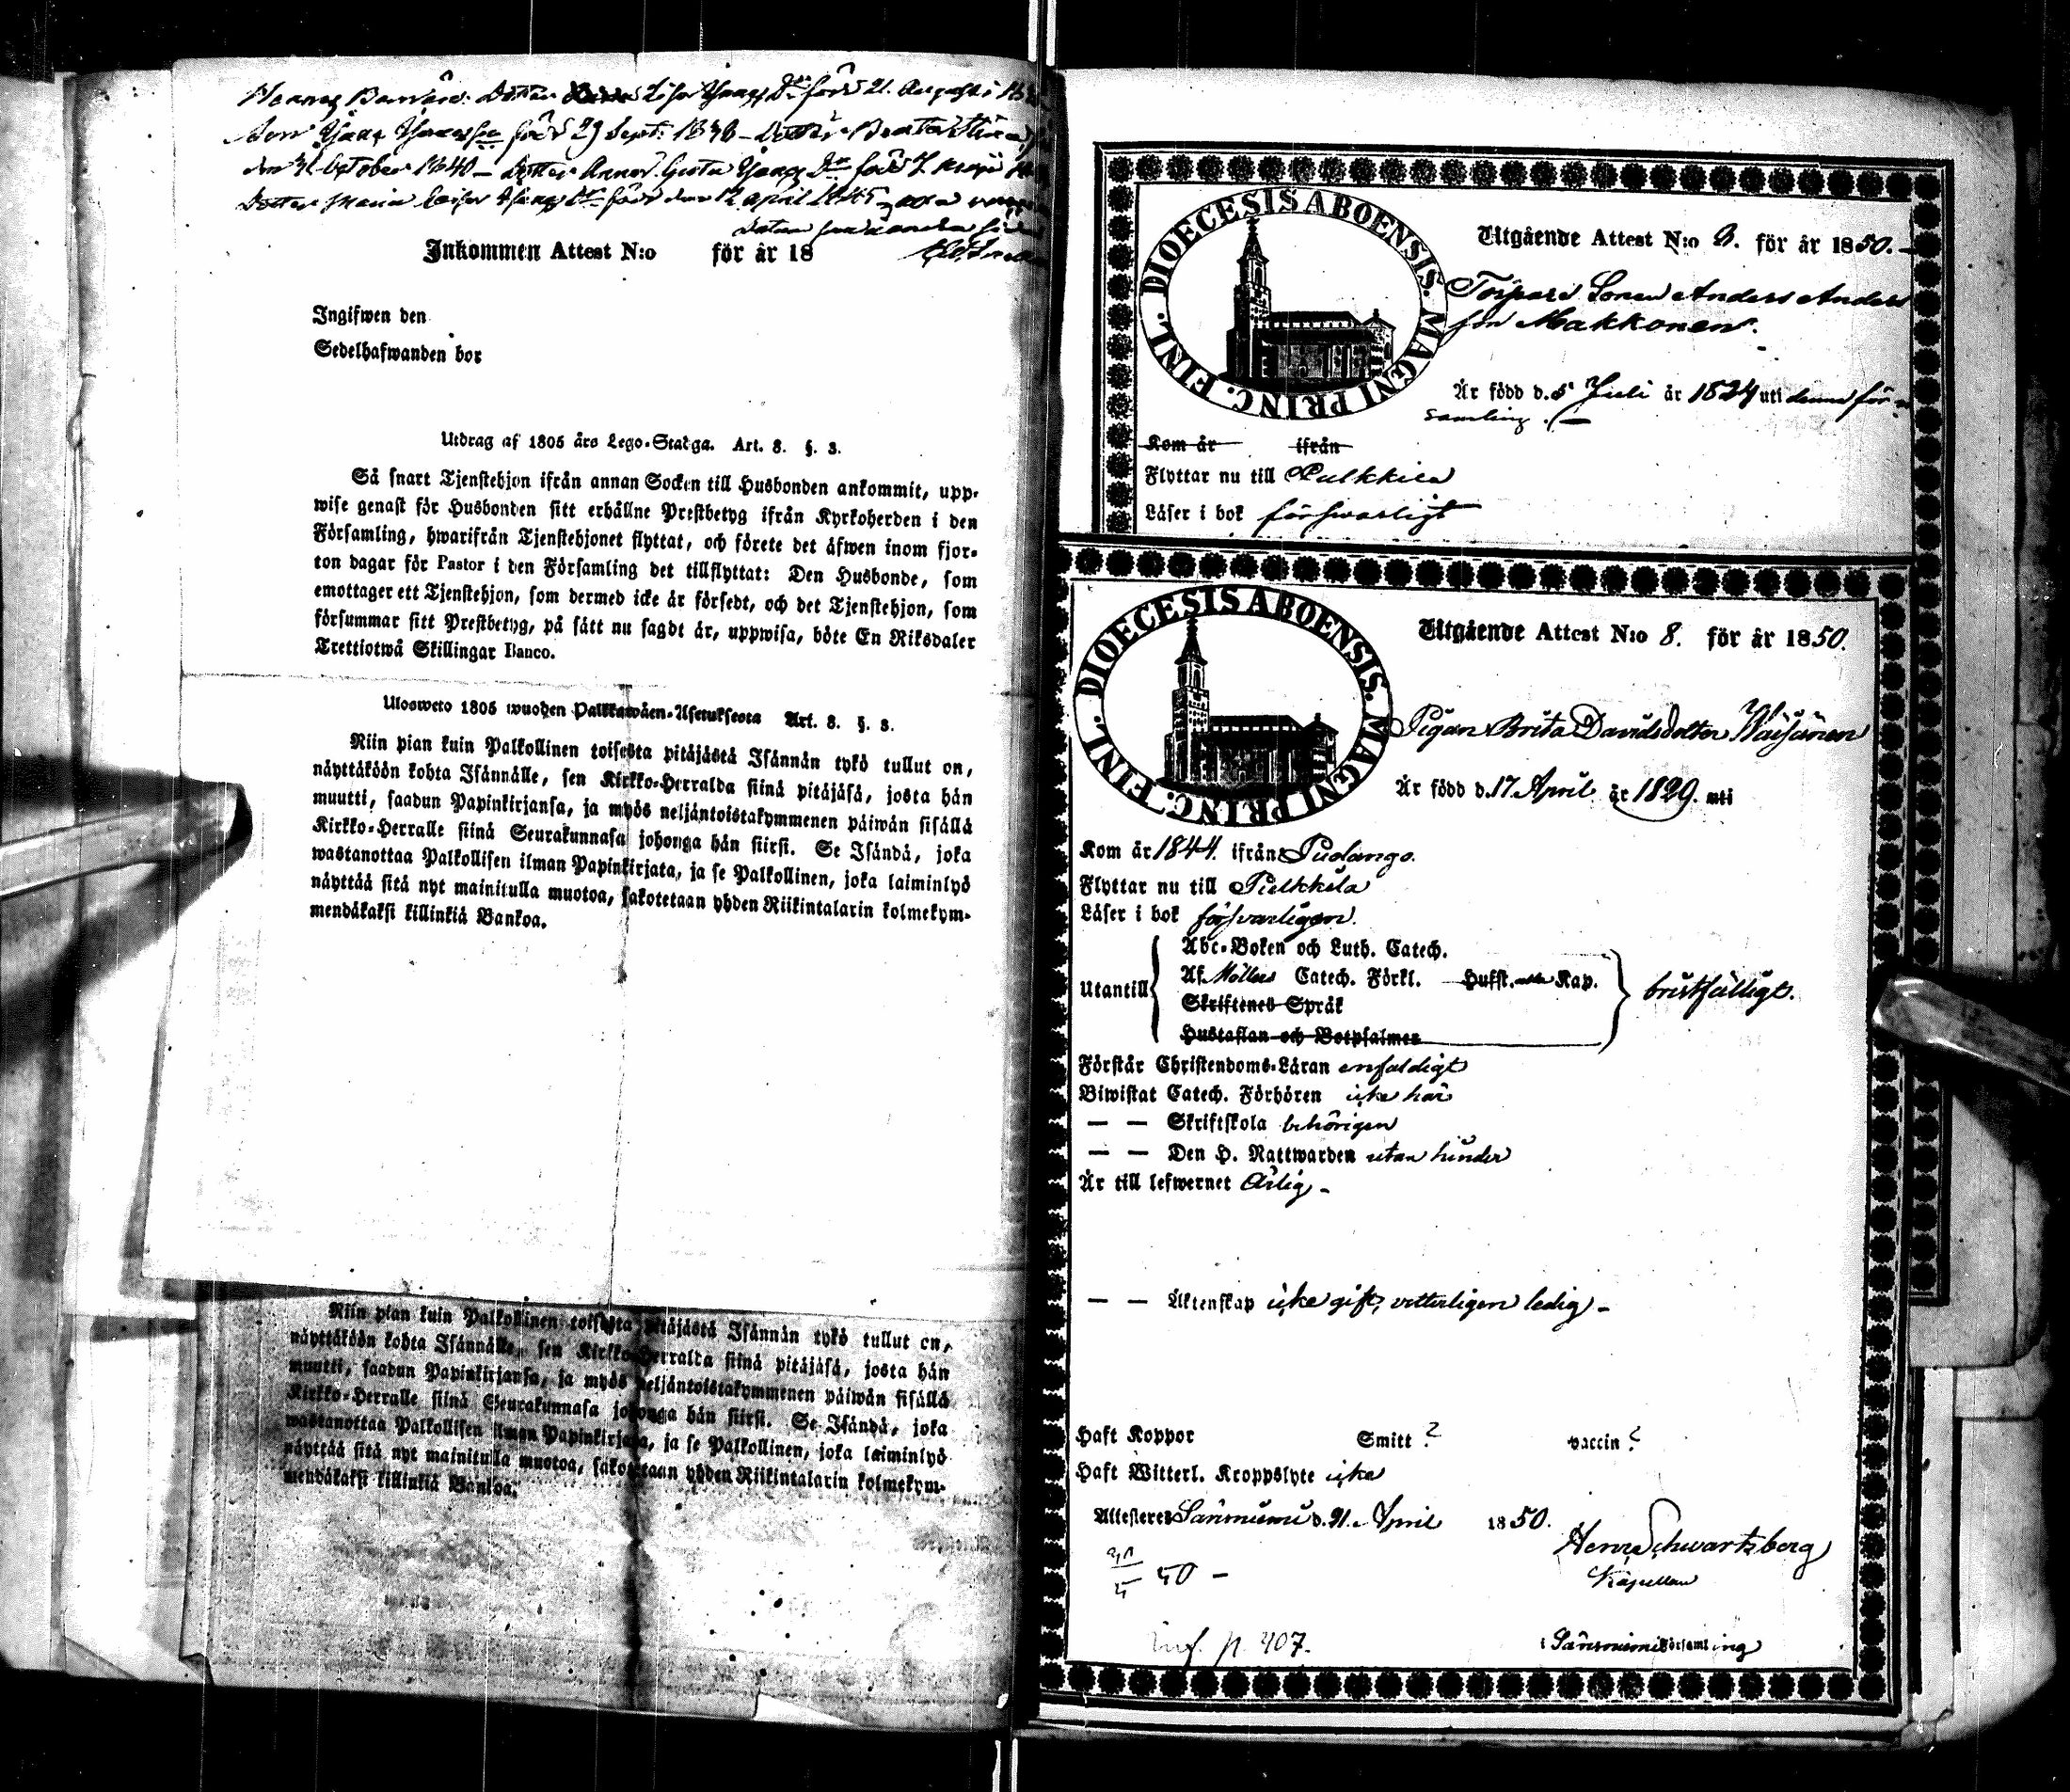 Barnen. Dotter Lisa född 21. Augusti
Son född 29 Sept. 1838 – Dotter Beata Stina
den October 1840 – Dotter Anna Greta född 7
Dotter Maria född den 12 April 1845
Inkommen Attest N:o för år 18
Ingifwen den
Sedelhafwanden bor
Utdrag af 1805 års Lego-Stadga. Art. 8. §. 3.
Så snart Tjenstehjon ifrån annan Socken till Husbonden ankommit, upp-
wise genast för Husbonden sitt erhållne Prestbetyg ifrån Kyrkoherden i den
Församling, hwarifrån Tjenstehjonet flyttat, och förete det äfwen inom fjor-
ton dagar för Pastor i den Församling det tillflyttat: Den Husbonde, som
emottager ett Tjenstehjon, som dermed icke är försedt, och det Tjenstehjon, som
försummar sitt Prestbetyg, på sätt nu sagdt är, uppwisa, böte En Riksdaler
Trettiotwå Skillingar Banco.
Ulosweto 1805 wuoden Palkkawäen-Asetuksesta Art. 8. §. 3.
Niin pian kuin Palkollinen toisesta pitäjästä Isännän tykö tullut on,
näyttäköön kohta Isännälle, sen Kirkko-Herralda siinä pitäjäsä, josta hän
muutti, saadun Papinkirjansa, ja myös neljäntoistakymmenen päiwän sisällä
Kirkko-Herralle siinä Seurakunnasa johonga hän siirsi. Se Isändä, joka
wastanottaa Palkollisen ilman Papinkirjata, ja se Palkollinen, joka laiminlyö
näyttää sitä nyt mainitulla muotoa, sakotetaan yhden Riikintalarin kolmekym-
mendäkaksi killinkiä Bankoa.
Niin pian kuin Palkollinen toisesta pitäjästä Isännän tykö tullut on,
näyttäköön kohta Isännälle, sen Kirkko-Herralda siinä pitäjäsä, josta hän
muutti, saadun Papinkirjansa, ja myös neljäntoistakymmenen päiwän sisällä
Kirkko-Herralle siinä Seurakunnasa johonga hän siirsi. Se Isändä, joka
wastanottaa Palkollisen ilman Papinkirjata, ja se Palkollinen, joka laiminlyö
näyttää sitä nyt mainitulla muotoa, sakotetaan yhden Riikintalarin kolmekym-
mendäkaksi killinkiä Bankoa.
DIOECESIS ABOENSIS. MAGNI PRINC. FINL.
Utgående Attest N:o för år 1850. –
Torpare Sonen Anders Anders
son Makkonen.
Är född d. 5 Juli år 1824 uti denna för-
samling. –
Kom år ifrån
Flyttar nu till Pulkkila
Läser i bok försvarligt
DIOECESIS ABOENSIS. MAGNI PRINC. FINL.
Utgående Attest N:o 8. för år 1850.
Pigan Brita Davidsdotter Väisänen
Är född d. 17 April år 1829. uti
Kom år 1844. ifrån Puolango.
Flyttar nu till Pulkkila
Läser i bok försvarligen.
Utantill
Abc-Boken och Luth. Catech.
Af Möllers Catech. Förkl. Hufst. Kap.
Skriftenes Språk
Hustaflan och Botpsalmer
bristfälligt.
Förstår Christendoms-Läran enfaldigt
Biwistat Catech. Förhören icke här
— — Skriftskola behörigen
— — Den H. Nattwarden utan hinder
Är till lefwernet Ärlig –
— — Äktenskap icke gift, vetterligen ledig –
Haft Koppor Smitt ? vaccin ?
Haft Witterl. Kroppslyte icke
Attesteres Säräisniemi d. 21. April 1850.
Henr Schwartzberg
Kapellan
50 –
Inf. p. 407.
i församling